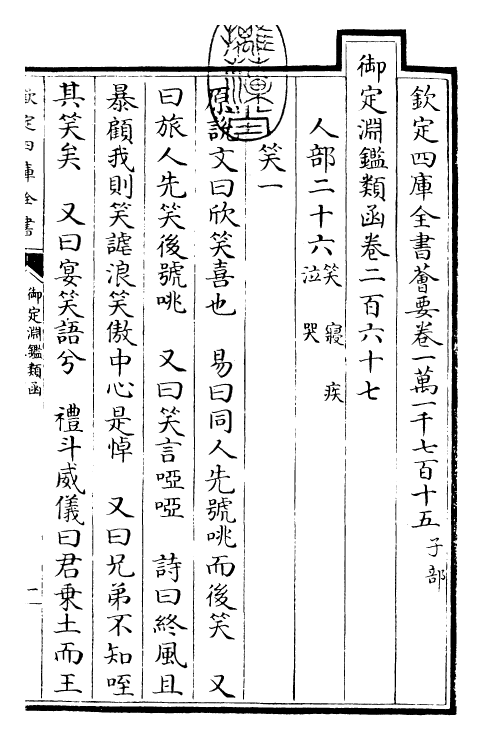 欽定四庫全書薈要卷一萬一千七百十五 子部
御定淵鑑類函卷二百六十七
人部二十六 笑 寢 疾
泣 哭
笑一
原說文曰欣笑喜也 易曰同人先號咷而後笑 又
曰旅人先笑後號咷 又曰笑言啞啞 詩曰終風且
暴顧我則笑謔浪笑傲中心是悼 又曰兄弟不知咥
其笑矣 又曰宴笑語兮 禮斗威儀曰君乗土而王
欽定四庫全書
御定淵鑑類函